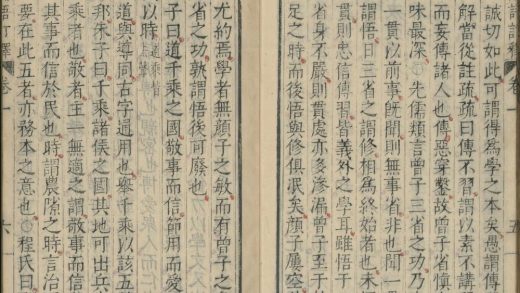 卷一 五
誠切如此可謂得為學之本矣愚謂傳
解當從註疏疏曰傳不習謂以素不講
而妄傳諸人也傳惡穿鑿故曾子省慎
味最深○先儒類言曾子三省之功乃
一貫以前事既聞則無事省非也聞一
謂悟日三省之謂修相為終始者也未
貫則忠信傳習皆義外之學耳雖悟于
省身不嚴則貫處亦多滲漏曾子至于
足之時而後悟與修俱泯矣顏子屢空
尤約焉學者無顏子之敏而有曾子之
省之功孰謂悟後可廢也
子曰道千乘之國敬事而信節用而愛
以時
道與導同古字通用也舉千乘以該五
邦朱子曰千乘諸侯之國其地可出兵
乘者也敬者主一無適之謂敬事而信
其事而信於民也時謂農隙之時言治
要在此五者亦務本之意也○程氏曰
語訂釋 卷一 六